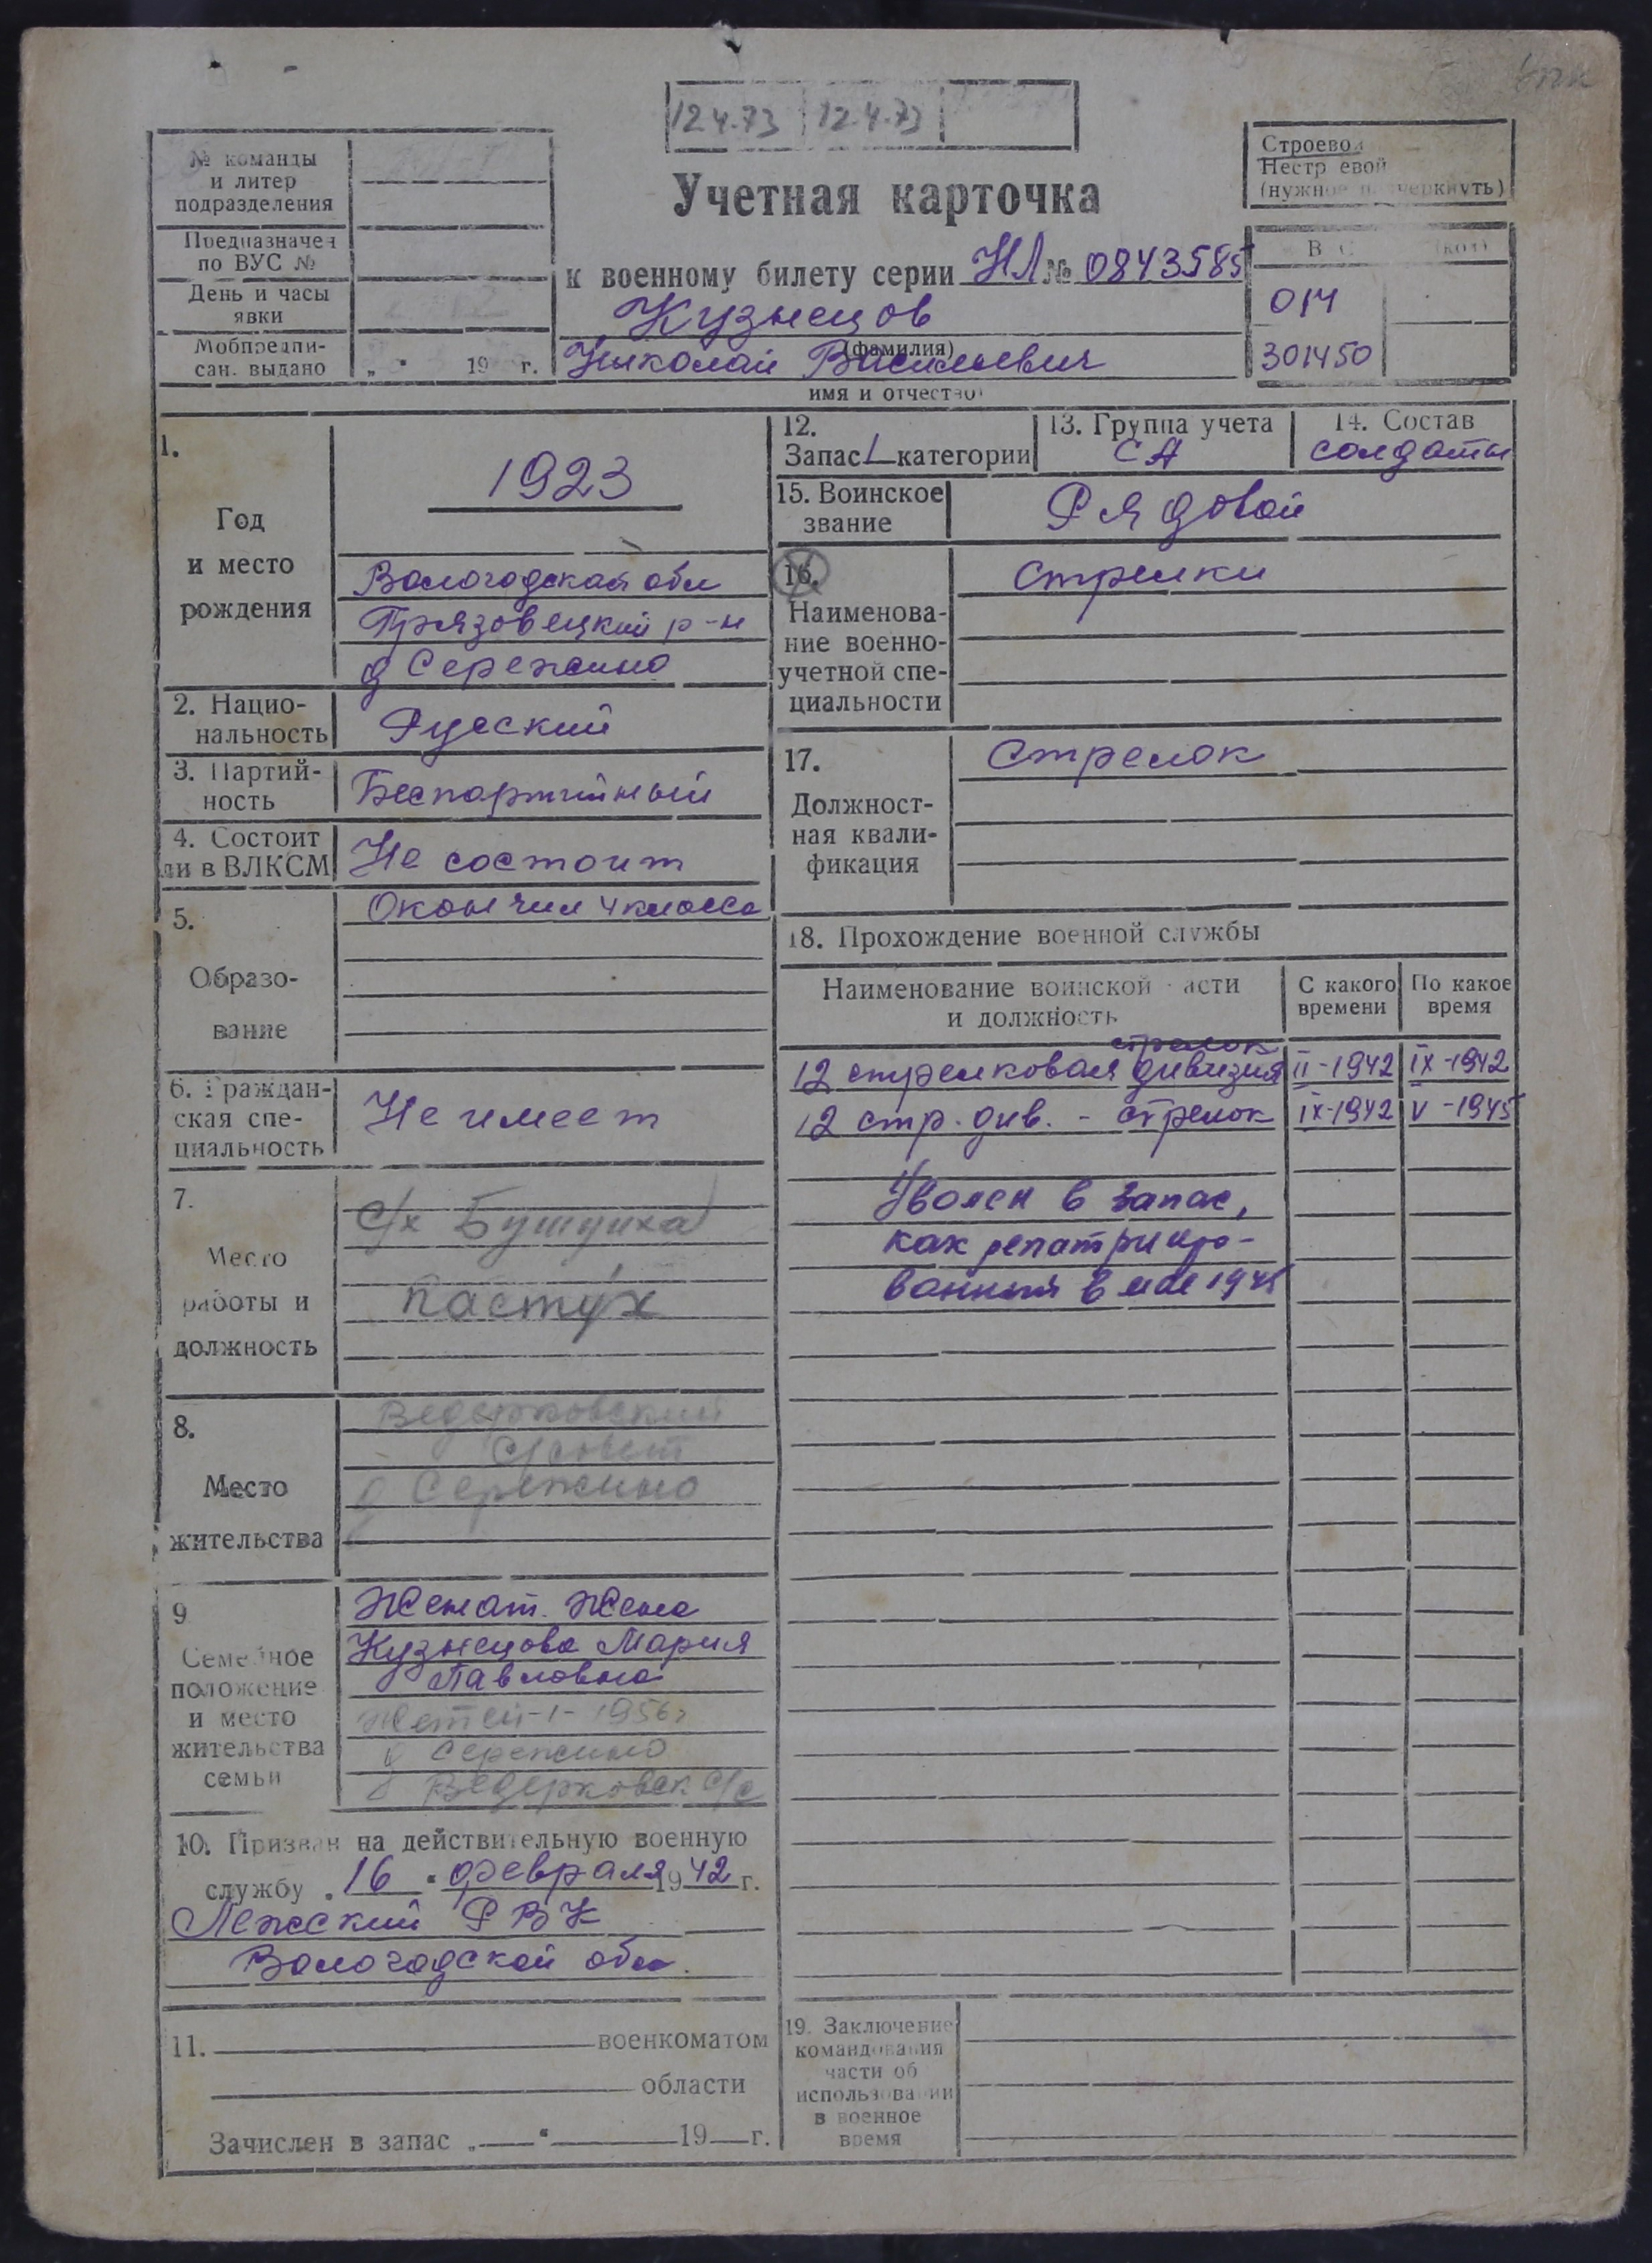 12.4.73 12.4.73
№ команды
и литер
подразделения
Предназначен
по ВУС №
День и часы
явки
Мобпредпи-
сан. выдано „ " 19 г.
Учетная карточка
к военному билету серии НЛ № 0843585
Кузнецов
(фамилия)
Николай Васильевич
имя и отчество
Строевой
Нестроевой
(нужное подчеркнуть)
014
301450
1.
Год
и место
рождения
1923
Вологодская обл
Грязовецкий р-н
д Сережино
2. Нацио-
нальность
Русский
3. Партий-
ность
Беспартийный
4. Состоит
ли в ВЛКСМ
Не состоит
5.
Образо-
вание
Окончил 4 класса
6. Граждан-
ская спе-
циальность
Не имеет
7.
Место
работы и
должность
с/х Бушуиха
Пастух
8.
Место
жительства
Ведерковский
с/совет
д Сережино
9
Семейное
положение
и место
жительства
семьи
Женат. Жена
Кузнецова Мария
Павловна
детей-1- 1956г
д Сережино
Ведерковск с/с
10. Призван на действительную военную
службу „ 16 " февраля 1942 г.
Лежский РВК
Вологодской обл.
11. военкоматом
области
Зачислен в запас „ " 19 г.
12.
Запас 1 категории
13. Группа учета
СА
14. Состав
солдаты
15. Воинское
звание
Рядовой
16.
Наименова-
ние военно-
учетной спе-
циальности
Стрелки
17.
Должност-
ная квали-
фикация
Стрелок
18. Прохождение военной службы
Наименование воинской части
и должность
С какого
времени
По какое
время
стрелок
12 стрелковая дивизия II-1942 IX-1942
12 стр. див. - стрелок IX-1942 V-1945
Уволен в запас,
как репатрииро-
ванный в мае 1945
19. Заключение
командования
части об
использовании
в военное
время